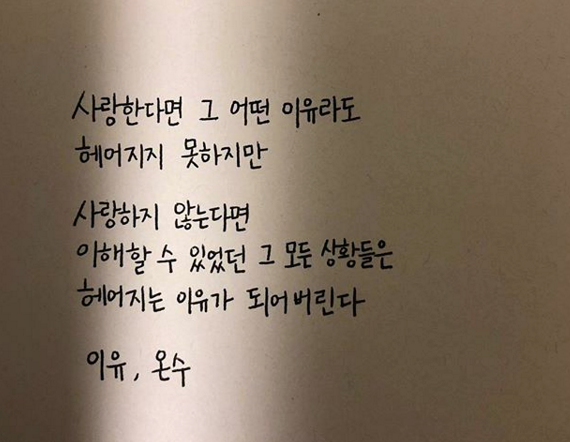 사랑한다면 그 어떤 이유라도
헤어지지 못하지만
사랑하지 않는다면
이해할 수 있었던 그 모든 상황들은
헤어지는 이유가 되어버린다
이유, 온수